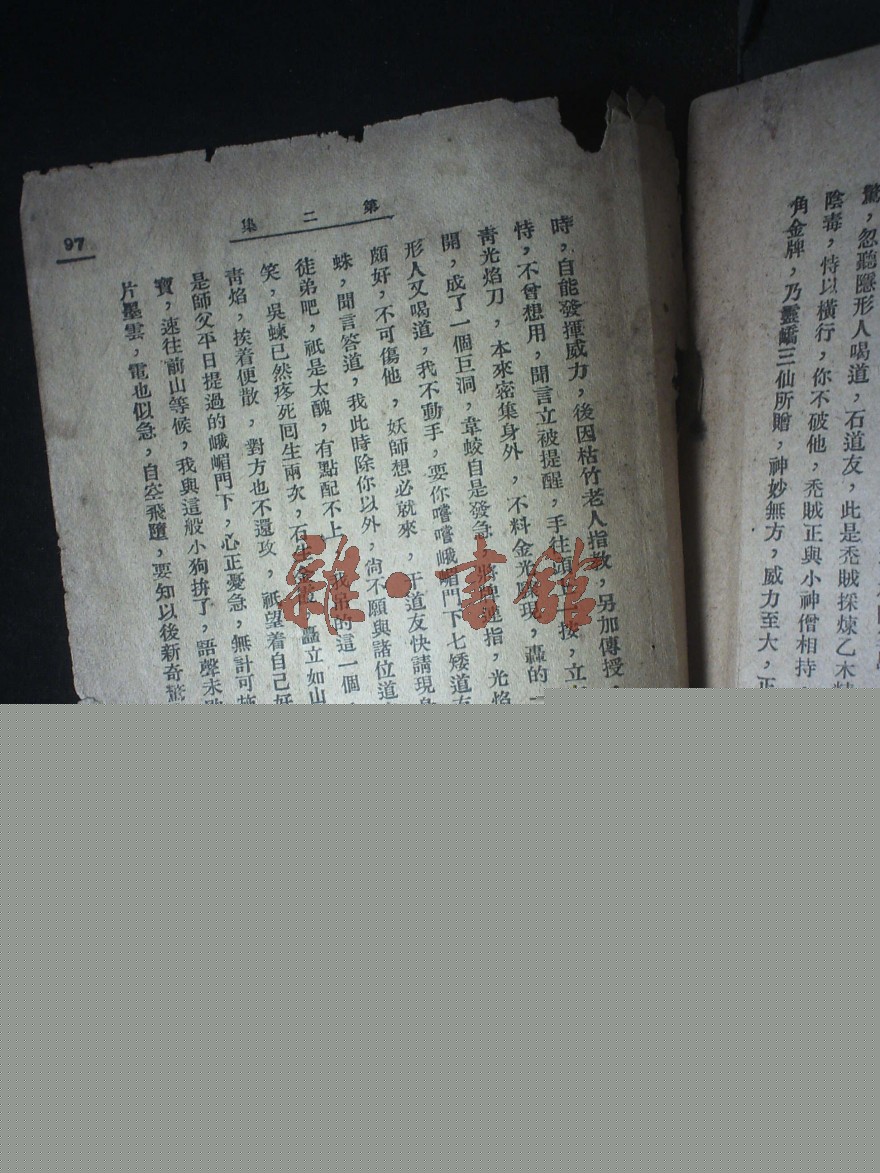 驚，忽聽隱形人喝道，石道友，此是禿賊採煉乙木精
陰毒，恃以橫行，你不破他，禿賊正與小神僧相持，
角金牌，乃靈嶠三仙所贈，神妙無方，威力至大，正
第二集
時，自能發揮威力，後因枯竹老人指教，另加傳授，
恃，不曾想用，聞言立被提醒，手往頭一按，立
青光焰刀，本來密集身外，不料金光現，轟的一
開，成了一個巨洞，韋蛟自是發急，將連指，光焰
形人又喝道，我不動手，要你嚐嚐峨嵋門下七矮道友
頗好，不可傷他，妖師想必就來，干道友快請現身
蛛，聞言答道，我此時除你以外，尙不願與諸位道
徒弟吧，祇是太醜，有點配不上，我吊的這一個，
笑，吳蛛已然疼死回生兩次，石生，矗立如山
青焰，挨着便散，對方也不還攻，祇望着自己好
是師父平日提過的峨嵋門下，心正憂急，無計可施
寶，速往前山等候，我與這般小狗拚了，語聲未
片墨雲，電也似急，自空飛墮，要知以後新奇驚
97
雜·書館